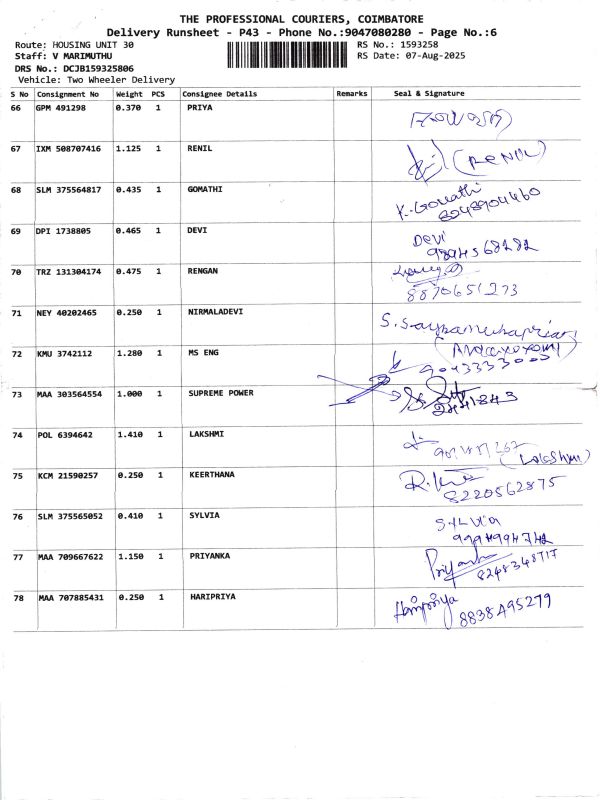 THE PROFESSIONAL COURIERS, COIMBATORE
Delivery Runsheet - P43 - Phone No.:9047080280 - Page No.:6
Route: HOUSING UNIT 30
RS No.: 1593258
Staff: V MARIMUTHU
RS Date: 07-Aug-2025
DRS No.: DCJB159325806
Vehicle: Two Wheeler Delivery
S No Consignment No Weight PCS Consignee Details Remarks Seal & Signature
66 GPM 491298 0.370 1 PRIYA
67 IXM 508707416 1.125 1 RENIL
(RENIL)
68 SLM 375564817 0.435 1 GOMATHI
K. Gomathi
8248904460
69 DPI 1738805 0.465 1 DEVI
DEVI
70 TRZ 131304174 0.475 1 RENGAN
8870651273
71 NEY 40202465 0.250 1 NIRMALADEVI
72 KMU 3742112 1.280 1 MS ENG
9043333003
73 MAA 303564554 1.000 1 SUPREME POWER
74 POL 6394642 1.410 1 LAKSHMI
(Lakshmi)
75 KCM 21590257 0.250 1 KEERTHANA
8220562875
76 SLM 375565052 0.410 1 SYLVIA
SYLVIA
9994994742
77 MAA 709667622 1.150 1 PRIYANKA
Priyanka
8248348717
78 MAA 707885431 0.250 1 HARIPRIYA
Haripriya
8838495279